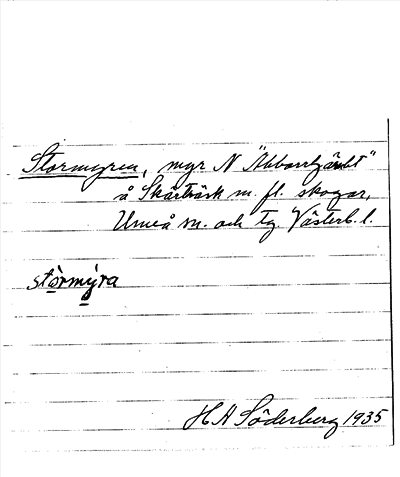 Stormyren, myr N "Abborrtjärnet"
å Skärträsk m. fl. skogar,
Umeå sn. och tg. Västerb. l.
stòrmýra
H A Söderberg 1935